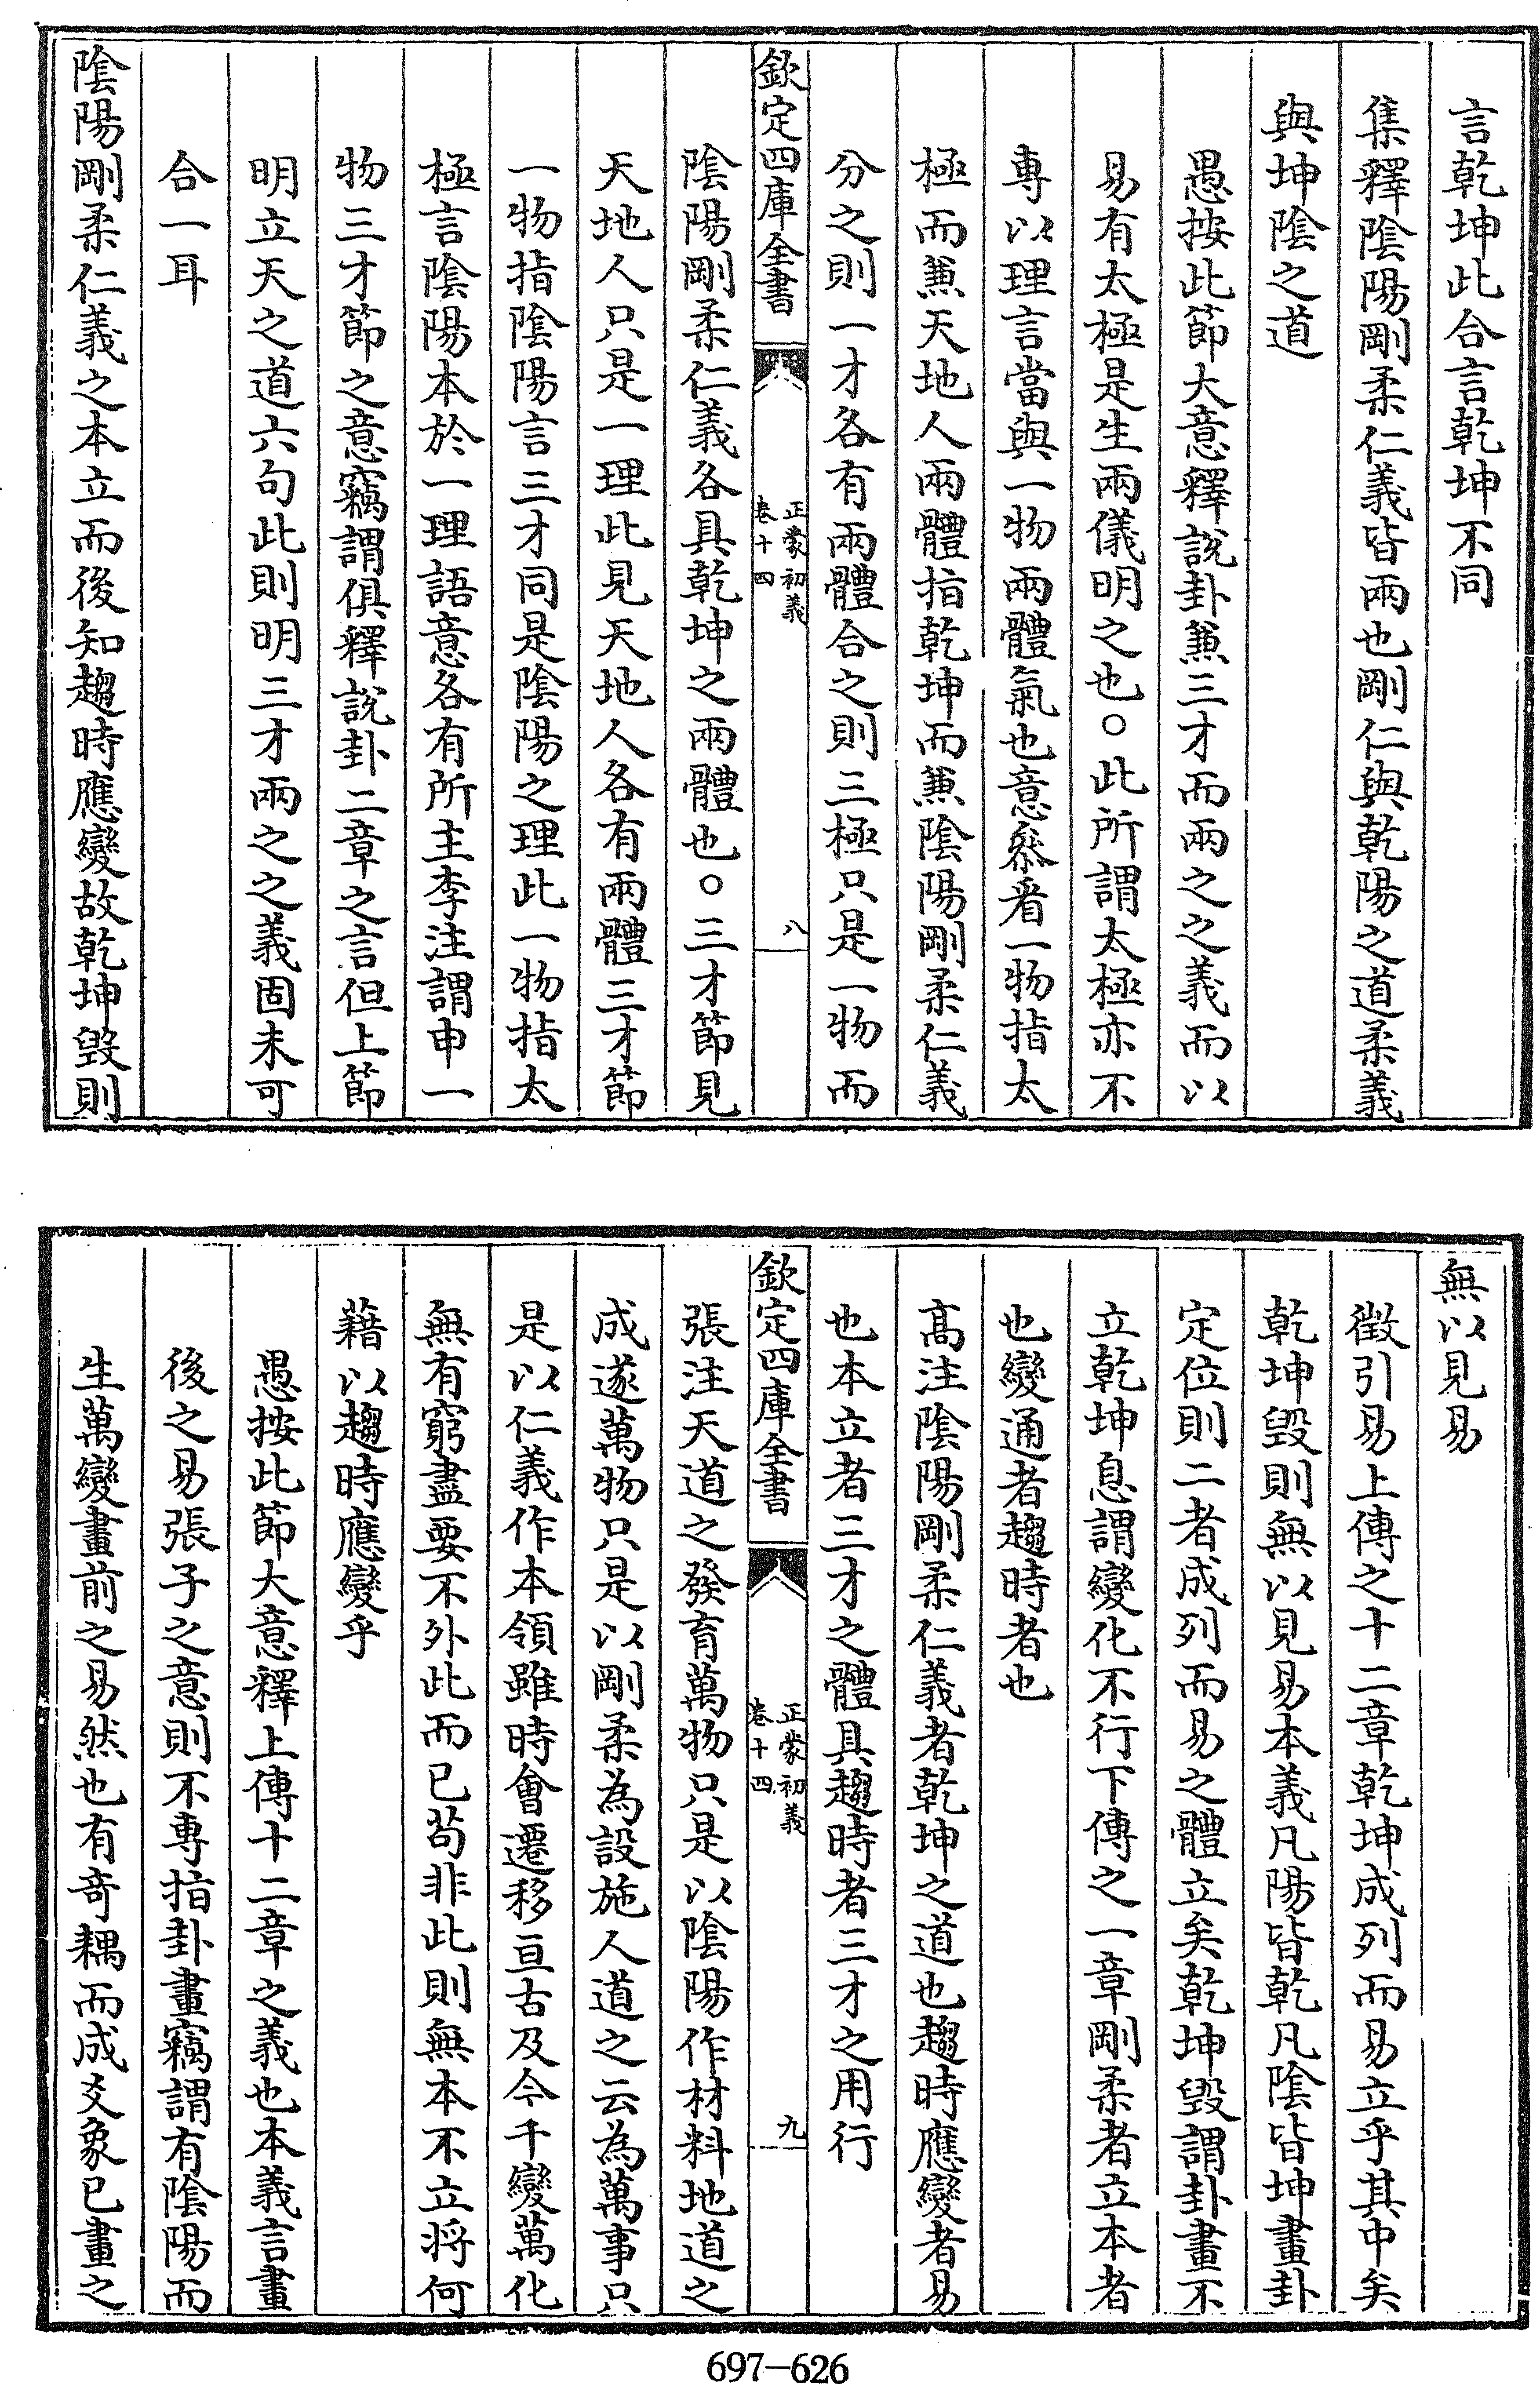 言乾坤此合言乾坤不同
集釋陰陽剛柔仁義皆兩也剛仁與乾陽之道柔義
與坤陰之道
愚按此節大意釋說卦兼三才而兩之之義而以
易有太極是生兩儀明之也○此所謂太極亦不
專以理言當與一物兩體氣也意叅看一物指太
極而兼天地人兩體指乾坤而兼陰陽剛柔仁義
分之則一才各有兩體合之則三極只是一物而
欽定四庫全書
正蒙初義
卷十四
八
陰陽剛柔仁義各具乾坤之兩體也○三才節見
天地人只是一理此見天地人各有兩體三才節
一物指陰陽言三才同是陰陽之理此一物指太
極言陰陽本於一理語意各有所主李注謂申一
物三才節之意竊謂俱釋說卦二章之言但上節
明立天之道六句此則明三才兩之之義固未可
合一耳
陰陽剛柔仁義之本立而後知趨時應變故乾坤毀則
無以見易
徵引易上傳之十二章乾坤成列而易立乎其中矣
乾坤毀則無以見易本義凡陽皆乾凡陰皆坤畫卦
定位則二者成列而易之體立矣乾坤毀謂卦畫不
立乾坤息謂變化不行下傳之一章剛柔者立本者
也變通者趨時者也
高注陰陽剛柔仁義者乾坤之道也趨時應變者易
也本立者三才之體具趨時者三才之用行
欽定四庫全書
正蒙初義
卷十四
九
張注天道之發育萬物只是以陰陽作材料地道之
成遂萬物只是以剛柔為設施人道之云為萬事只
是以仁義作本領雖時會遷移亘古及今千變萬化
無有窮盡要不外此而已茍非此則無本不立將何
藉以趨時應變乎
愚按此節大意釋上傳十二章之義也本義言畫
後之易張子之意則不專指卦畫竊謂有陰陽而
生萬變畫前之易然也有竒耦而成爻象已畫之
697-626